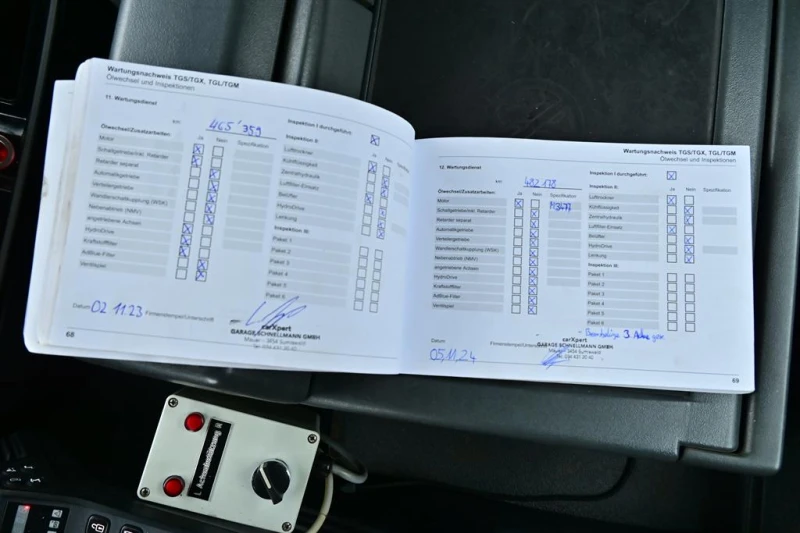 Wartungsnachweis TGS/TGX, TGL/TGM
Ölwechsel und Inspektionen
11. Wartungsdienst
km: 465'359
Ölwechsel/Zusatzarbeiten: Ja Nein Spezifikation
Motor
Schaltgetriebe/Intel. Retarder
Retarder separat
Automatikgetriebe
Verteilergetriebe
Wandlerschaltkupplung (WSK)
Nebenantrieb (NMV)
angetriebene Achsen
HydroDrive
Kraftstofffilter
AdBlue-Filter
Ventilspiel
Inspektion I durchgeführt:
Inspektion II: Ja Nein Spezifikation
Lufttrockner
Kühlflüssigkeit
Zentralhydraulik
Luftfilter-Einsatz
Batterien
HydroDrive
Lenkung
Inspektion III:
Paket 1
Paket 2
Paket 3
Paket 4
Paket 5
Paket 6
Datum 02 11 23 Firmenstempel/Unterschrift
carXpert
GARAGE SCHNELLMANN GMBH
68
Wartungsnachweis TGS/TGX, TGL/TGM
Ölwechsel und Inspektionen
12. Wartungsdienst
km:
Ölwechsel/Zusatzarbeiten: Ja Nein Spezifikation
Motor
Schaltgetriebe/Intel. Retarder
Retarder separat
Automatikgetriebe
Verteilergetriebe
Wandlerschaltkupplung (WSK)
Nebenantrieb (NMV)
angetriebene Achsen
HydroDrive
Kraftstofffilter
AdBlue-Filter
Ventilspiel
Inspektion I durchgeführt:
Inspektion II: Ja Nein Spezifikation
Lufttrockner
Kühlflüssigkeit
Zentralhydraulik
Luftfilter-Einsatz
Batterien
HydroDrive
Lenkung
Inspektion III:
Paket 1
Paket 2
Paket 3
Paket 4
Paket 5
Paket 6
Datum 05.11.24 Firmenstempel/Unterschrift
carXpert
GARAGE SCHNELLMANN GMBH
69